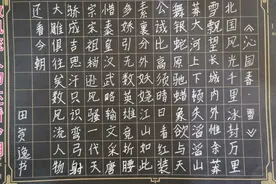 《沁园春 雪》
北国风光千里冰封万里
雪飘望长城内外惟余莽
莽大河上下顿失滔滔山
舞银蛇原驰蜡象欲与天
公试比高须晴日看红装
素裹分外妖娆江山如此
多娇引无数英雄竞折腰
惜秦皇汉武略输文采唐
宗宋祖稍逊风骚一代天
骄成吉思汗只识弯弓射
大雕俱往矣数风流人物
还看今朝
田贺逸书